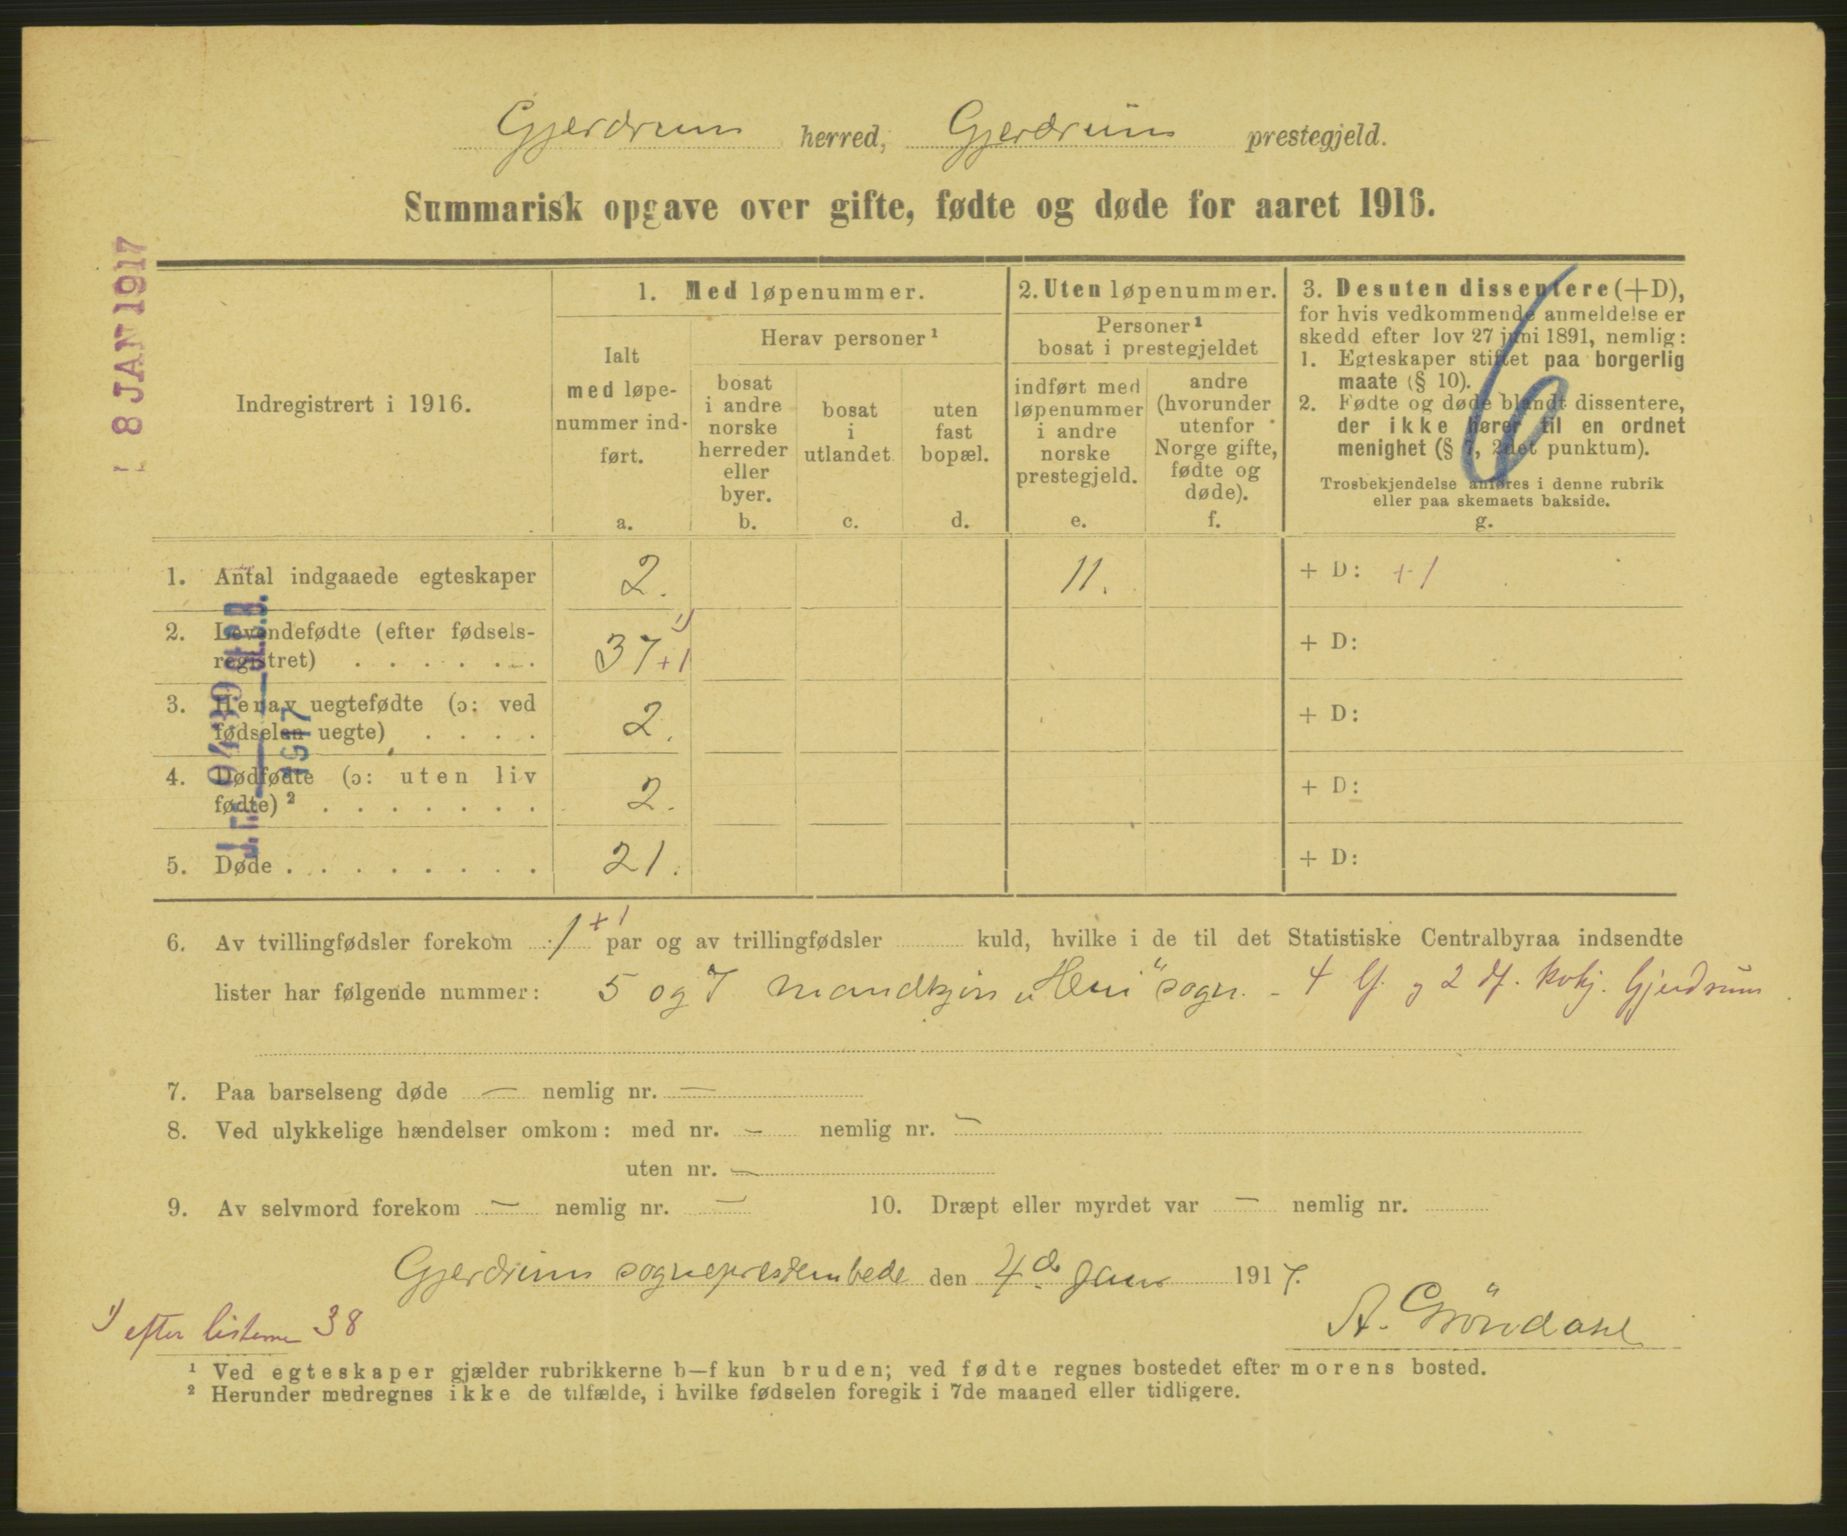 Gjerdrum herred, Gjerdrum prestegjeld.
Summarisk opgave over gifte, fødte og døde for aaret 1916.
8 JAN 1917
Indregistrert i 1916.
1. Med løpenummer.
Ialt
med løpe-
nummer ind-
ført.
a.
Herav personer ¹
bosat
i andre
norske
herreder
eller
byer.
b.
bosat
i
utlandet.
c.
uten
fast
bopæl.
d.
2. Uten løpenummer.
Personer ¹
bosat i prestegjeldet
indført med
løpenummer
i andre
norske
prestegjeld.
e.
andre
(hvorunder
utenfor
Norge gifte,
fødte og
døde).
f.
3. Desuten dissentere (+D),
for hvis vedkommende anmeldelse er
skedd efter lov 27 juni 1891, nemlig:
1. Egteskaper stiftet paa borgerlig
maate (§ 10).
2. Fødte og døde blandt dissentere,
der ikke hører til en ordnet
menighet (§ 7, 2det punktum).
Trosbekjendelse anføres i denne rubrik
eller paa skemaets bakside.
g.
6
1. Antal indgaaede egteskaper 2. 11. + D: + 1
2. Levendefødte (efter fødsels-
registret) . . . . . . . 37 + 1 ¹) + D:
3. Herav uegtefødte (ɔ: ved
fødselen uegte) . . . . 2. + D:
4. Dødfødte (ɔ: uten liv
fødte) ² . . . . . . . 2. + D:
5. Døde . . . . . . . . 21. + D:
1917
6. Av tvillingfødsler forekom 1 + 1 par og av trillingfødsler kuld, hvilke i de til det Statistiske Centralbyraa indsendte
lister har følgende nummer: 5 og 7 mandkjøn „Heni“ sogn. - 4 lf. og 2 df. kvkj. Gjerdrum
7. Paa barselseng døde — nemlig nr. —
8. Ved ulykkelige hændelser omkom: med nr. — nemlig nr. —
uten nr. —
9. Av selvmord forekom — nemlig nr. — 10. Dræpt eller myrdet var — nemlig nr.
Gjerdrum sogneprestembede den 4de Janr 1917.
A. Gröndahl
¹) efter listerne 38
¹ Ved egteskaper gjælder rubrikkerne b—f kun bruden; ved fødte regnes bostedet efter morens bosted.
² Herunder medregnes ikke de tilfælde, i hvilke fødselen foregik i 7de maaned eller tidligere.